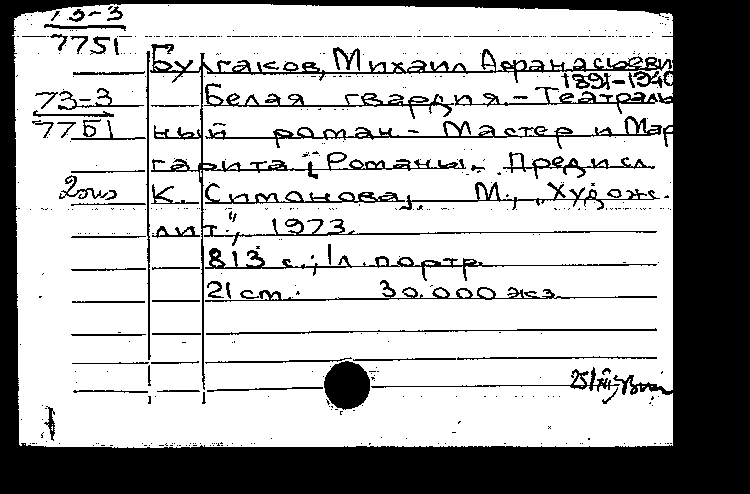 73-3
7751
Булгаков, Михаил Афанасьеви
1891-1940
73-3
7751
Белая гвардия. - Театраль
ный роман. - Мастер и Мар
гарита [Романы. Предисл.
2 экз
К. Симонова]. М., „Худож.
лит.“, 1973.
813 с.; 1 л. портр.
21 см. 30.000 экз.